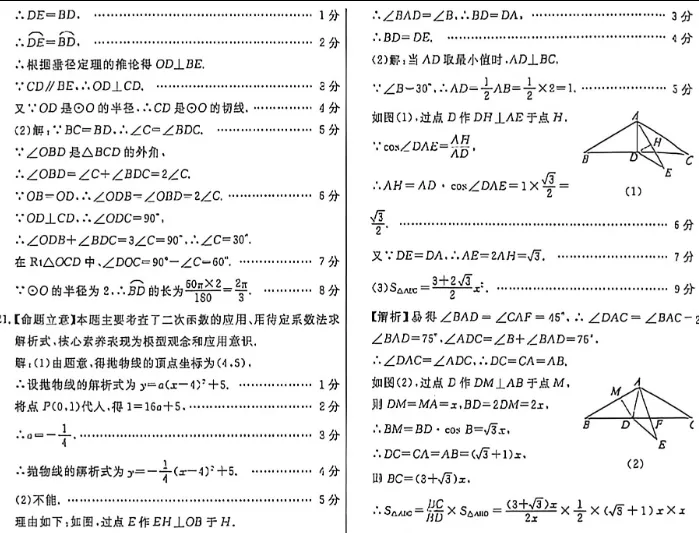 ∴DE=BD, 1分
∴DE=BD, 2分
∴根据垂径定理的推论得 OD⊥BE.
∵CD∥BE,∴OD⊥CD. 3分
又∵OD是⊙O的半径,∴CD是⊙O的切线. 4分
(2)解:∵BC=BD,∴∠C=∠BDC. 5分
∵∠OBD是△BCD的外角,
∴∠OBD=∠C+∠BDC=2∠C.
∵OB=OD,∴∠ODB=∠OBD=2∠C. 6分
∵OD⊥CD,∴∠ODC=90°,
∴∠ODB+∠BDC=3∠C=90°,∴∠C=30°.
在Rt△OCD中,∠DOC=90°-∠C=60°. 7分
∵⊙O的半径为2,∴BD的长为60π×2/180=2π/3. 8分
21.【命题立意】本题主要考查了二次函数的应用、用待定系数法求
解析式,核心素养表现为模型观念和应用意识.
解:(1)由题意,得抛物线的顶点坐标为(4,5),
∴设抛物线的解析式为y=a(x-4)²+5. 1分
将点P(0,1)代入,得1=16a+5, 2分
∴a=-1/4. 3分
∴抛物线的解析式为y=-1/4(x-4)²+5. 4分
(2)不能. 5分
理由如下:如图,过点E作EH⊥OB于H.
∴∠BAD=∠B,∴BD=DA, 3分
∴BD=DE. 4分
(2)解:当AD取最小值时,AD⊥BC.
∵∠B=30°,∴AD=1/2AB=1/2×2=1. 5分
如图(1),过点D作DH⊥AE于点H,
∵cos∠DAE=AH/AD,
∴AH=AD·cos∠DAE=1×√3/2=
√3/2. 6分
A
B
D
H
C
E
(1)
又∵DE=DA,∴AE=2AH=√3. 7分
(3)S△ADC=3+2√3/2x². 9分
【解析】易得∠BAD=∠CAF=45°,∴∠DAC=∠BAC-
∠BAD=75°,∠ADC=∠B+∠BAD=75°,
∴∠DAC=∠ADC,∴DC=CA=AB.
如图(2),过点D作DM⊥AB于点M,
则DM=MA=x,BD=2DM=2x,
∴BM=BD·cos B=√3x,
∴DC=CA=AB=(√3+1)x,
则BC=(3+√3)x,
A
M
B
D
F
C
E
(2)
∴S△ABC=BC/BD×S△ABD=(3+√3)x/2x×1/2×(√3+1)x×x